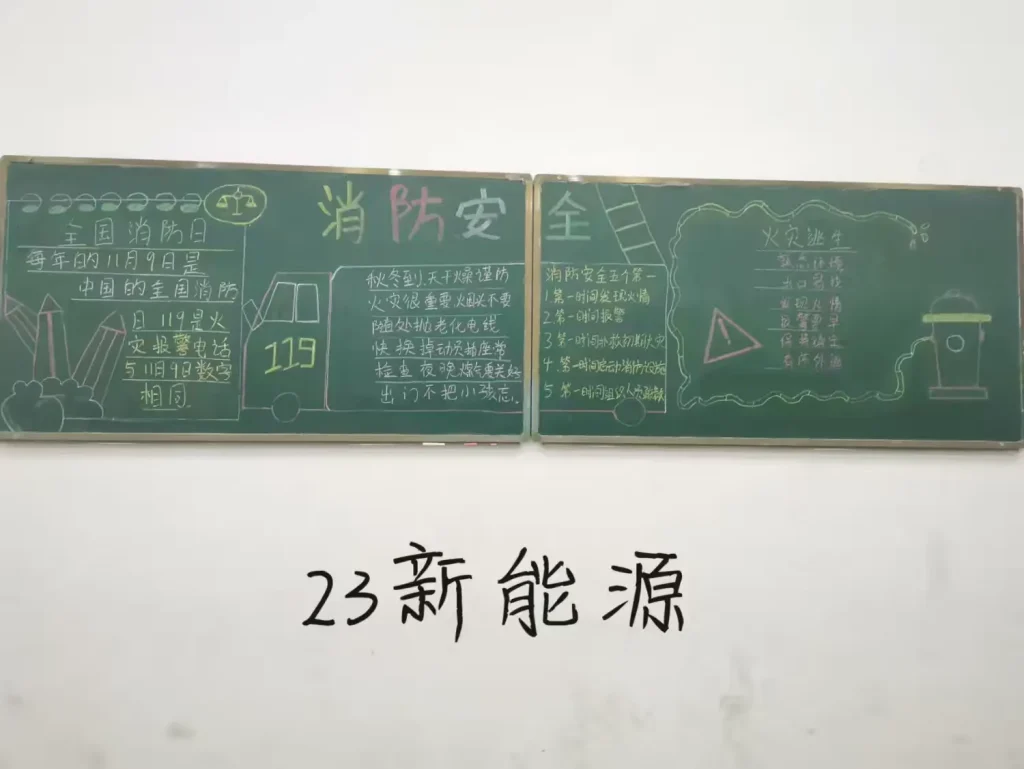 消防安全
全国消防日
每年的11月9日是
中国的全国消防
日 119是火
灾报警电话
与11月9日数字
相同
119
秋冬到,天干燥谨防
火灾很重要火因头不要
随处抛老化电线
快换掉动员插座常
检查夜晚煤气要关好
出门不把小孩忘
消防安全五个第一
1.第一时间发现火情
2.第一时间报警
3.第一时间扑救初期火灾
4.第一时间启动消防设施
5 第一时间组织人员疏散
火灾逃生
23新能源